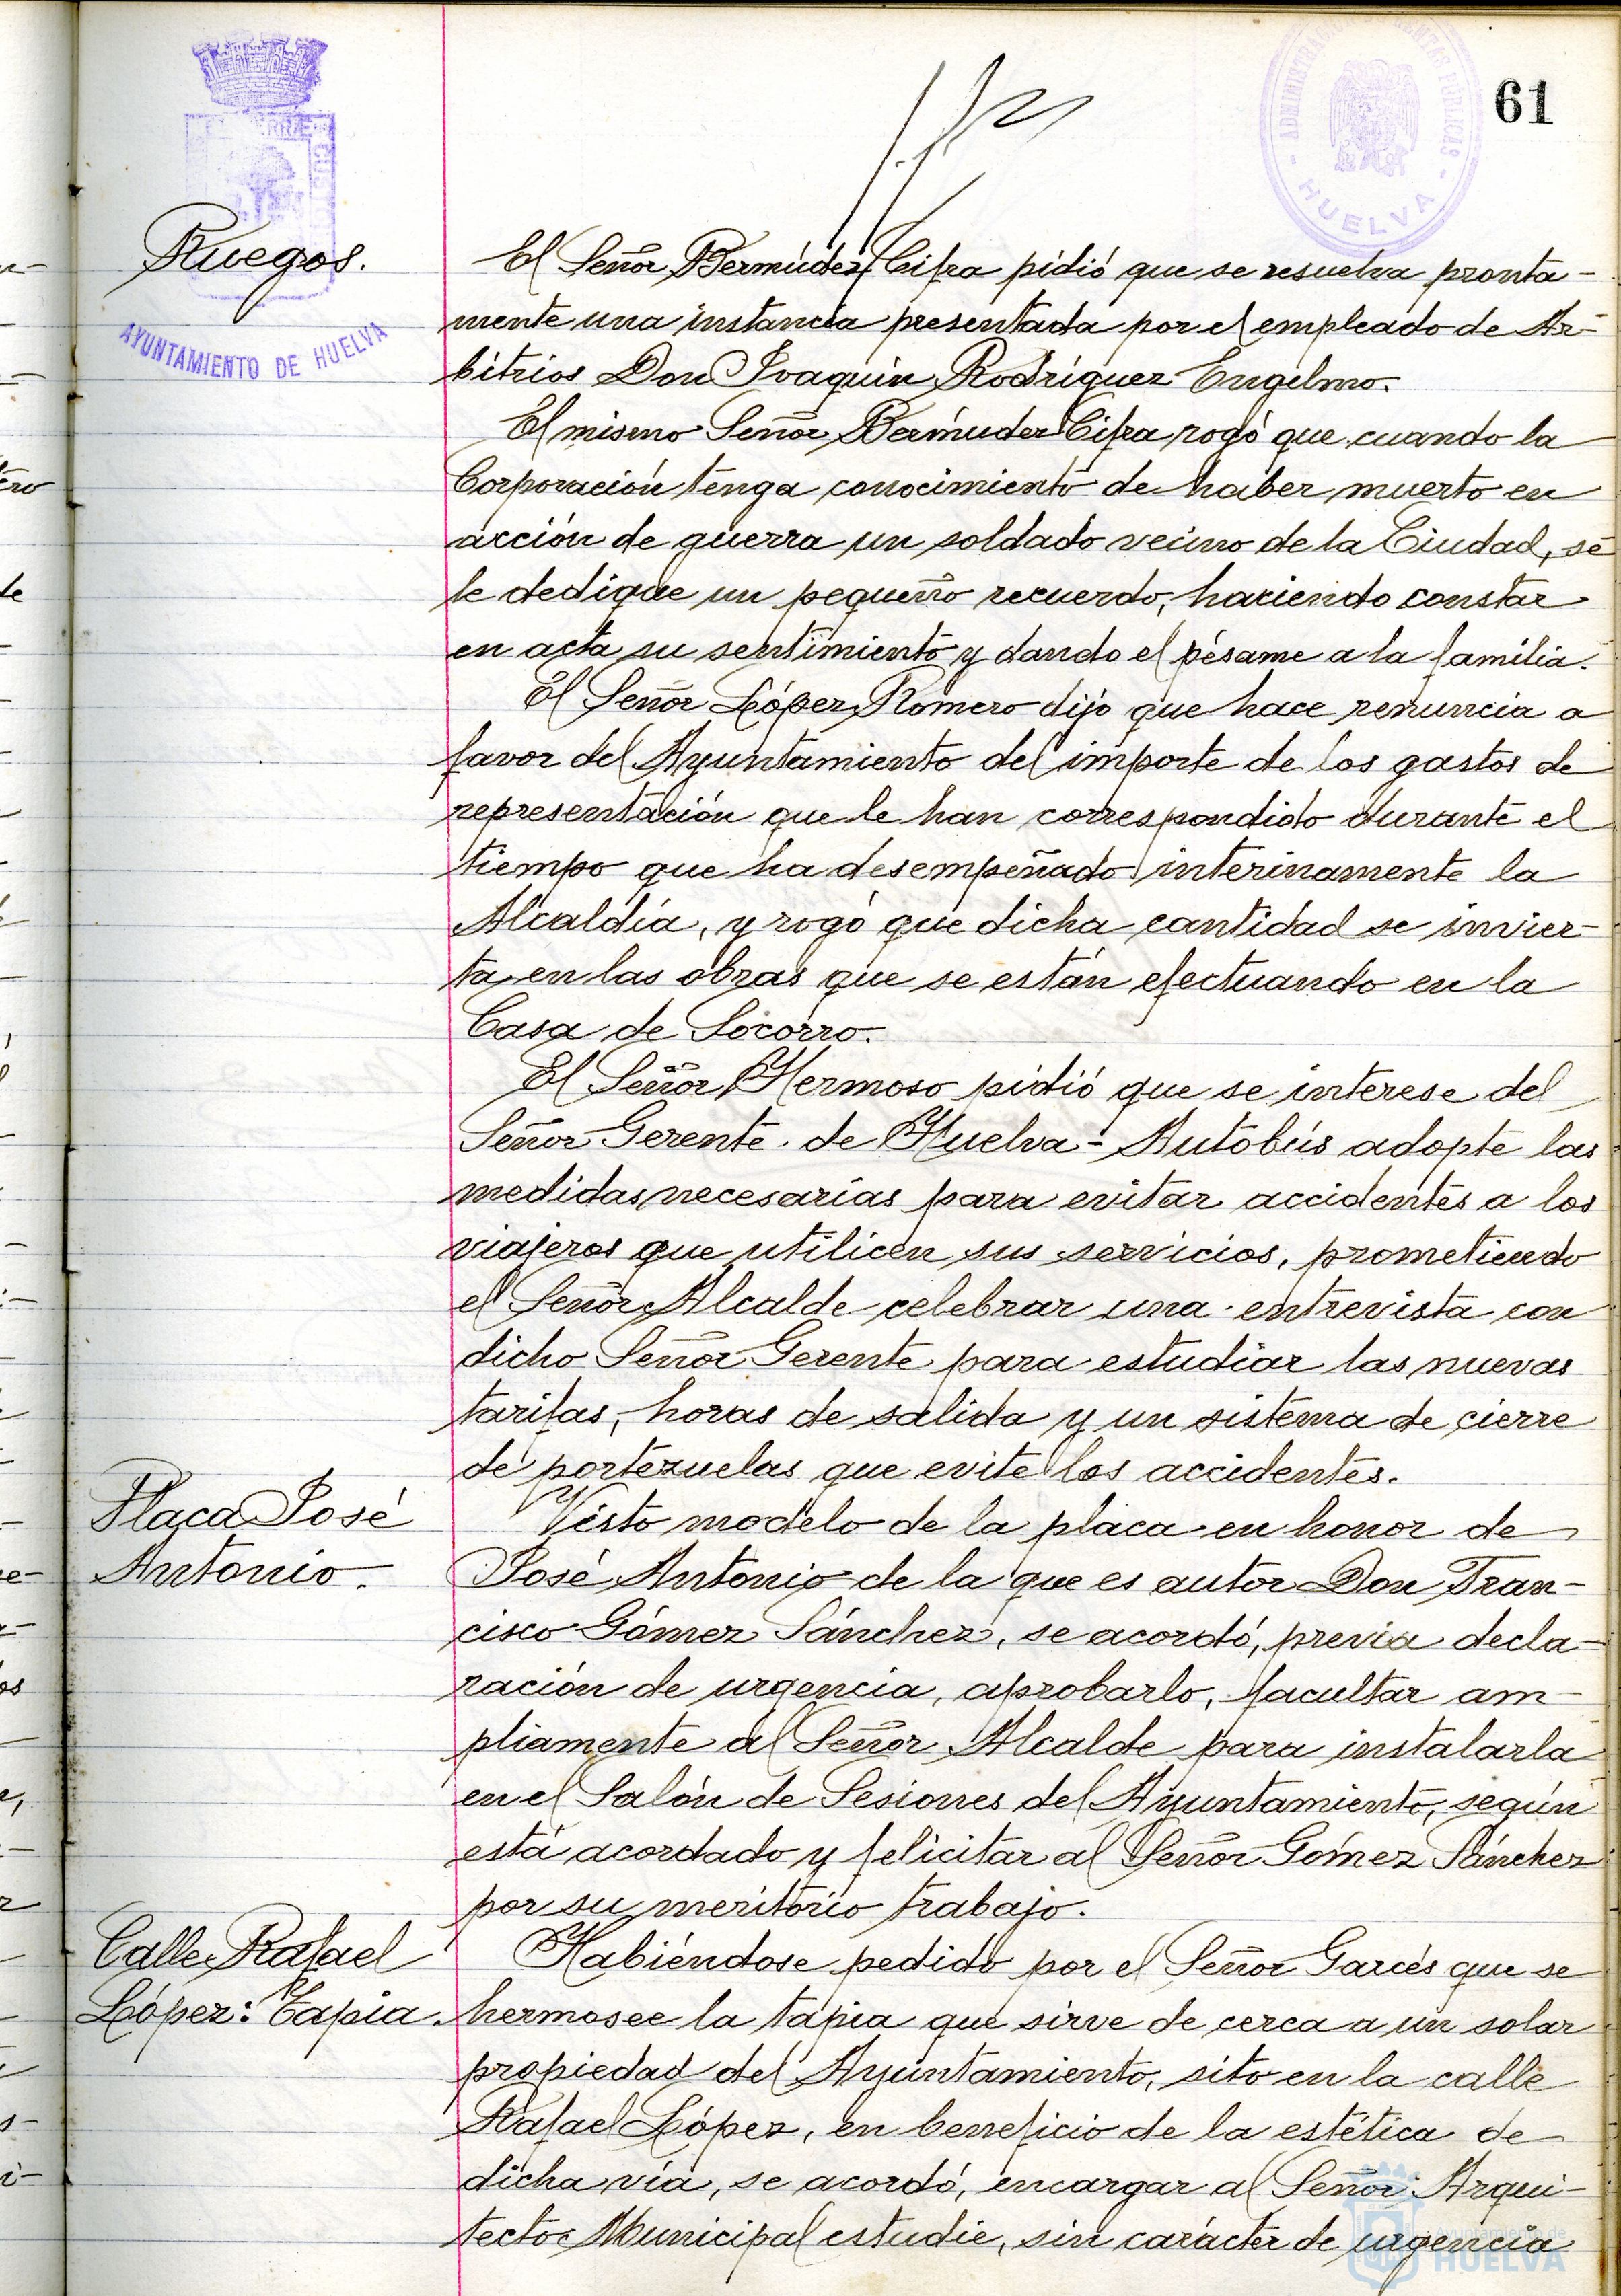 61
ADMINISTRACION RENTAS PUBLICAS
HUELVA
AYUNTAMIENTO DE HUELVA
Ruegos.
El Señor Bermúdez Cifra pidió que se resuelva pronta-
mente una instancia presentada por el empleado de Ar-
bitrios Don Joaquin Rodríguez Engelmo.
El mismo Señor Bermúdez Cifra rogó que cuando la
Corporación tenga conocimiento de haber muerto en
acción de guerra un soldado vecino de la Ciudad, se
le dedique un pequeño recuerdo, haciendo constar
en acta su sentimiento y dando el pésame a la familia.
El Señor López Romero dijo que hace renuncia a
favor del Ayuntamiento del importe de los gastos de
representación que le han correspondido durante el
tiempo que ha desempeñado interinamente la
Alcaldía, y rogó que dicha cantidad se invier-
ta en las obras que se están efectuando en la
Casa de Socorro.
El Señor Hermoso pidió que se interese del
Señor Gerente de Huelva-Autobús adopte las
medidas necesarias para evitar accidentes a los
viajeros que utilicen sus servicios, prometiendo
el Señor Alcalde celebrar una entrevista con
dicho Señor Gerente para estudiar las nuevas
tarifas, horas de salida y un sistema de cierre
de portezuelas que evite los accidentes.
Placa José
Antonio.
Visto modelo de la placa en honor de
José Antonio de la que es autor Don Fran-
cisco Gómez Sánchez, se acordó, previa decla-
ración de urgencia, aprobarlo, facultar am-
pliamente al Señor Alcalde para instalarla
en el Salón de Sesiones del Ayuntamiento, según
está acordado y felicitar al Señor Gómez Sánchez
por su meritorio trabajo.
Calle Rafael
López: Tapia.
Habiéndose pedido por el Señor Garcés que se
hermosee la tapia que sirve de cerca a un solar
propiedad del Ayuntamiento, sito en la calle
Rafael López, en beneficio de la estética de
dicha vía, se acordó, encargar al Señor Arqui-
tecto Municipal estudie, sin carácter de urgencia
Ayuntamiento de
HUELVA